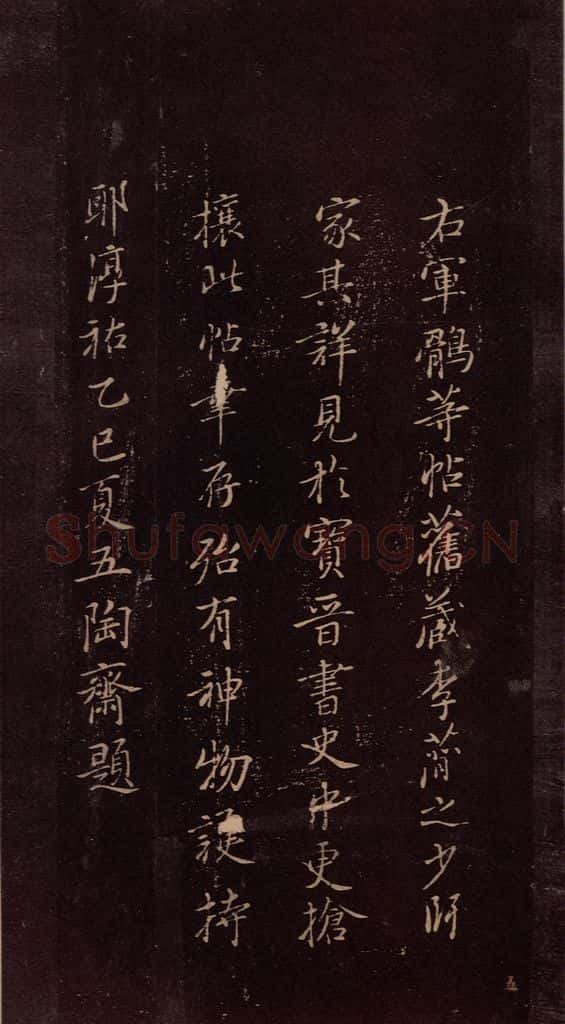 右軍鶻等帖舊藏李簡之少師
家其詳見於寶晉書史中更搶
攘此帖幸存殆有神物護持
耶淳祐乙巳夏五陶齋題
五
Shufawang.CN